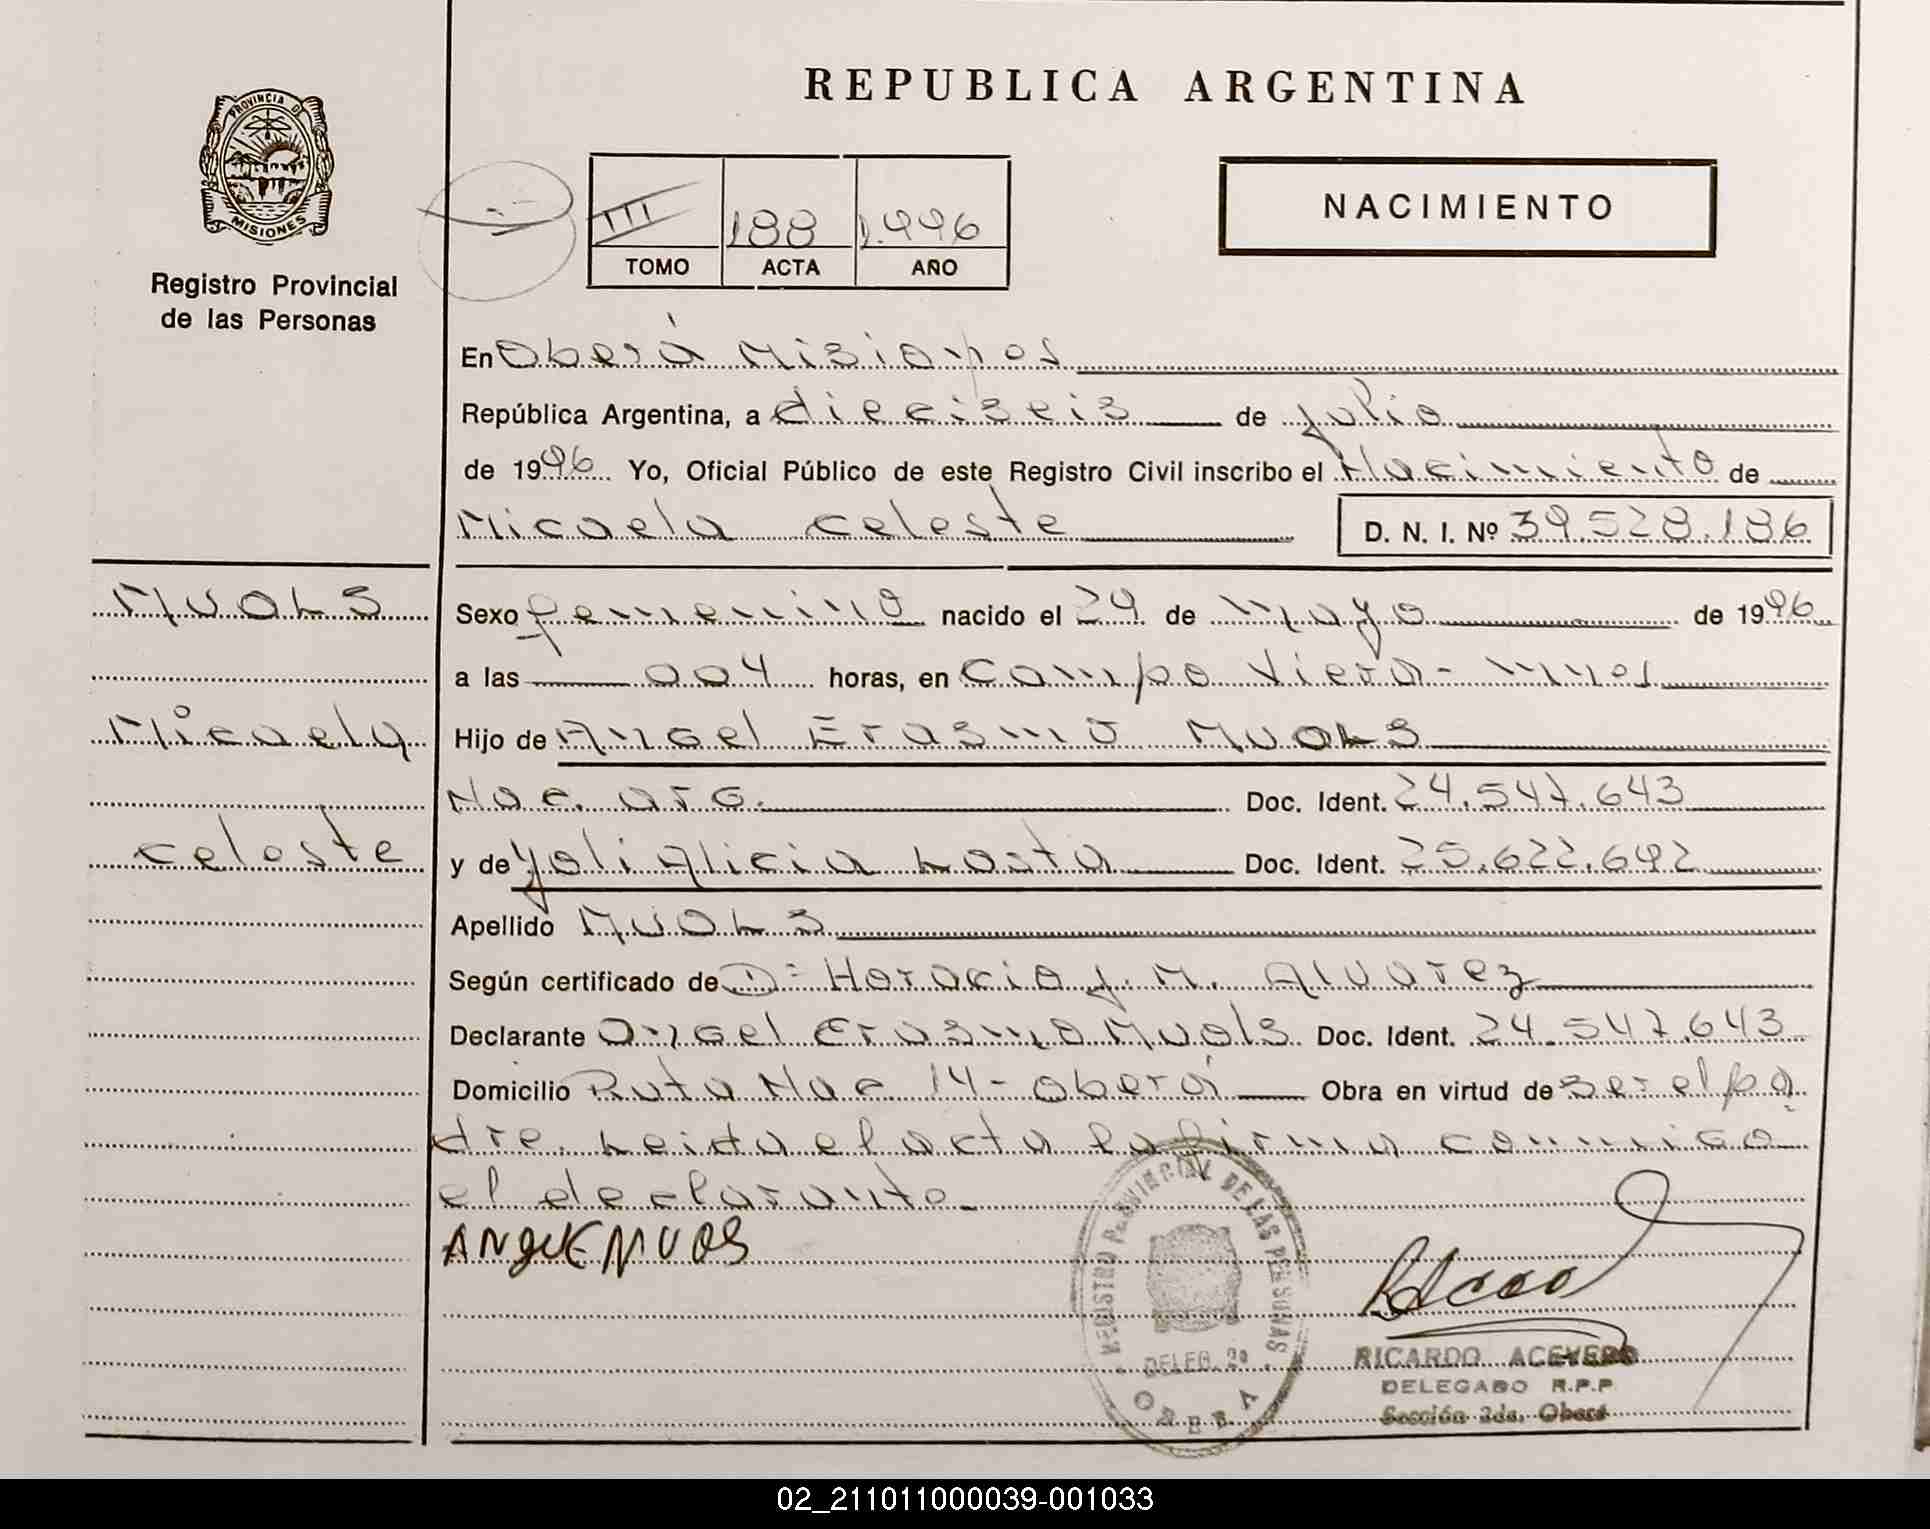 REPUBLICA ARGENTINA
PROVINCIA DE
MISIONES
Registro Provincial
de las Personas
III 188 1.996
TOMO ACTA AÑO
NACIMIENTO
En Oberá Misiones
República Argentina, a dieciseis de julio
de 1996 Yo, Oficial Público de este Registro Civil inscribo el Nacimiento de
Micaela Celeste D. N. I. Nº 39.528.186
MUOLS
Micaela
Celeste
Sexo femenino nacido el 29 de mayo de 1996
a las 004 horas, en Campo Viera - Mnes
Hijo de Angel Erasmo MUOLS
Nac. arg. Doc. Ident. 24.547.643
y de Yoli Alicia Losta Doc. Ident. 25.622.692
Apellido MUOLS
Según certificado de Dº Horacio J. M. Alvarez
Declarante Angel Erasmo Muols Doc. Ident. 24.547.643
Domicilio Ruta Nac. 14 - Oberá Obra en virtud de ser el pa
dre. Leida el acta la firma conmigo
el declarante.
REGISTRO PROVINCIAL DE LAS PERSONAS
DELEG. 2a
OBERA
RICARDO ACEVEDO
DELEGADO R.P.P
Sección 2da. Oberá
02_211011000039-001033